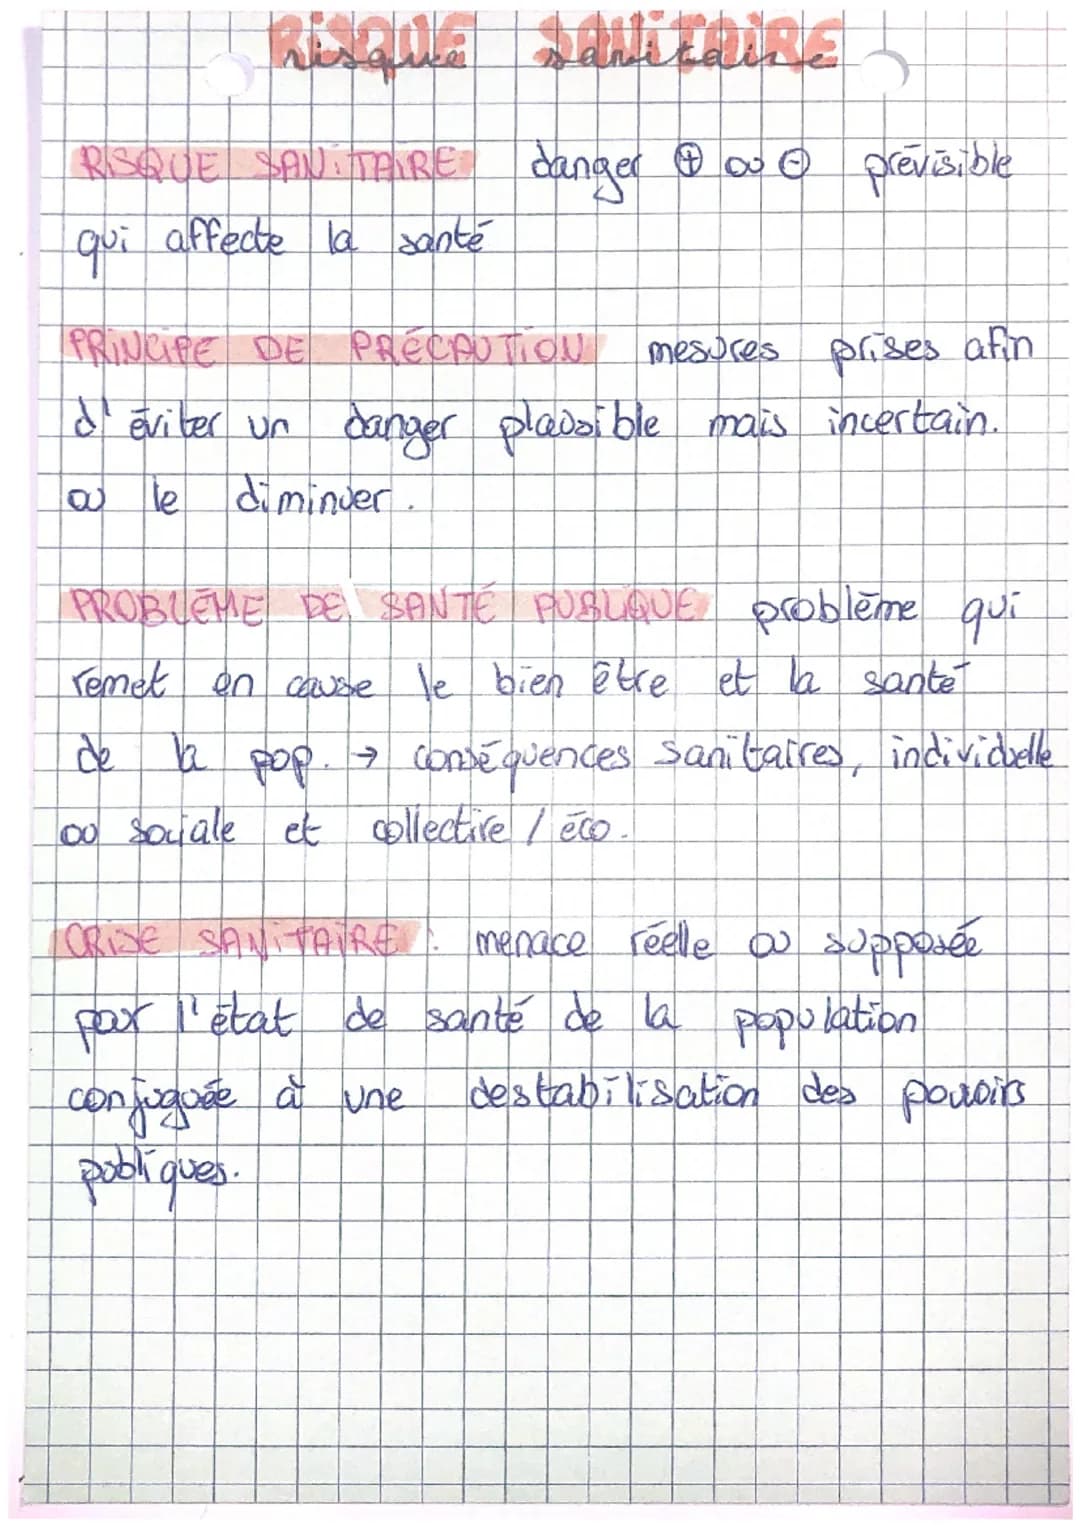 RISQUE SANITAIRE
risque sanitaire
RISQUE SANITAIRE danger ⊕ ou ⊖ prévisible
qui affecte la santé
PRINCIPE DE PRÉCAUTION mesures prises afin
d'éviter un danger plausible mais incertain.
ou le diminuer.
PROBLÈME DE SANTÉ PUBLIQUE problème qui
remet en cause le bien être et la santé
de la pop. → conséquences sanitaires, individuelle
ou sociale et collective / éco.
CRISE SANITAIRE : menace réelle ou supposée
par l'état de santé de la population
conjuguée à une destabilisation des pouvoirs
publiques.